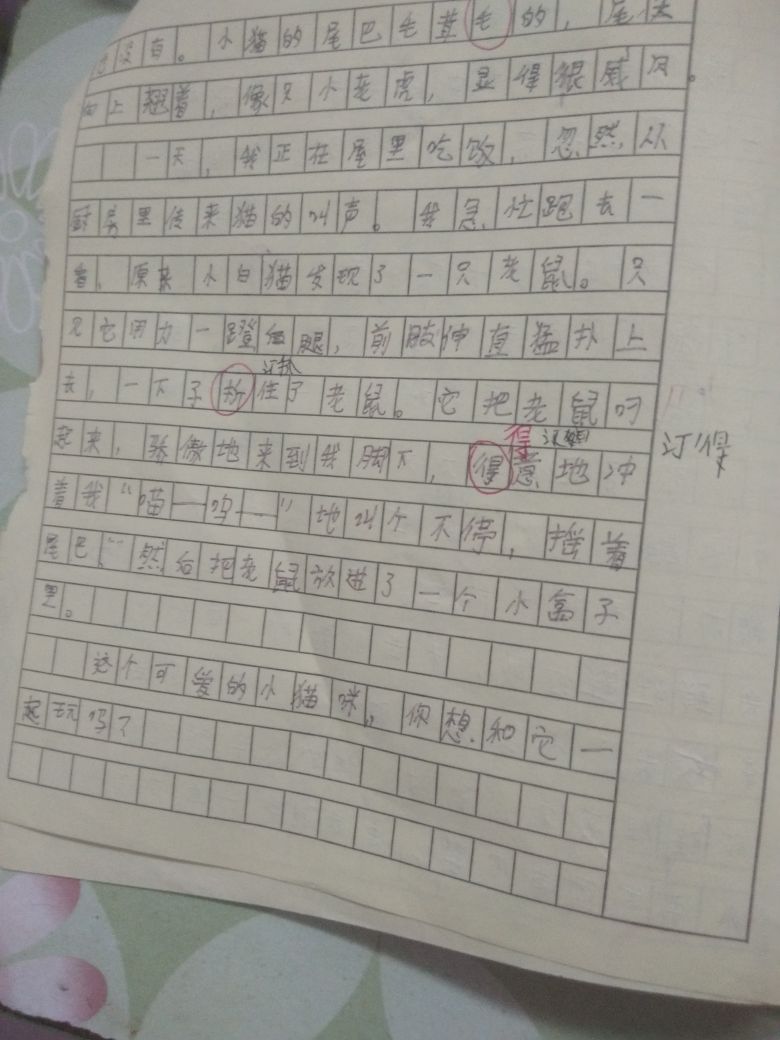 没有。小猫的尾巴毛茸毛的，尾
向上翘着，像只小老虎，显得很威风。
一天，我正在屋里吃饭，忽然从
厨房里传来猫的叫声。我急忙跑去一
看，原来小白猫发现了一只老鼠。只
见它用力一蹬后腿，前肢伸直猛扑上
订扒
去，一下子扒住了老鼠。它把老鼠叼
得 订
起来，骄傲地来到我脚下，得意地冲
订得
着我“喵——呜——”地叫个不停，摇着
尾巴，然后把老鼠放进了一个小盒子
里。
这个可爱的小猫咪。你想和它一
起玩吗？